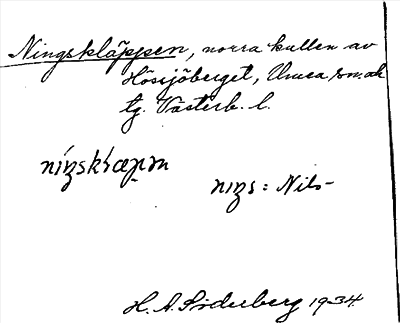 Ningskläppen, norra kullen av
Hössjöberget, Umeå sn. och
tg. Västerb. l.
nɪŋskłæpm
nɪŋs: Nils-
H. A. Söderberg 1934